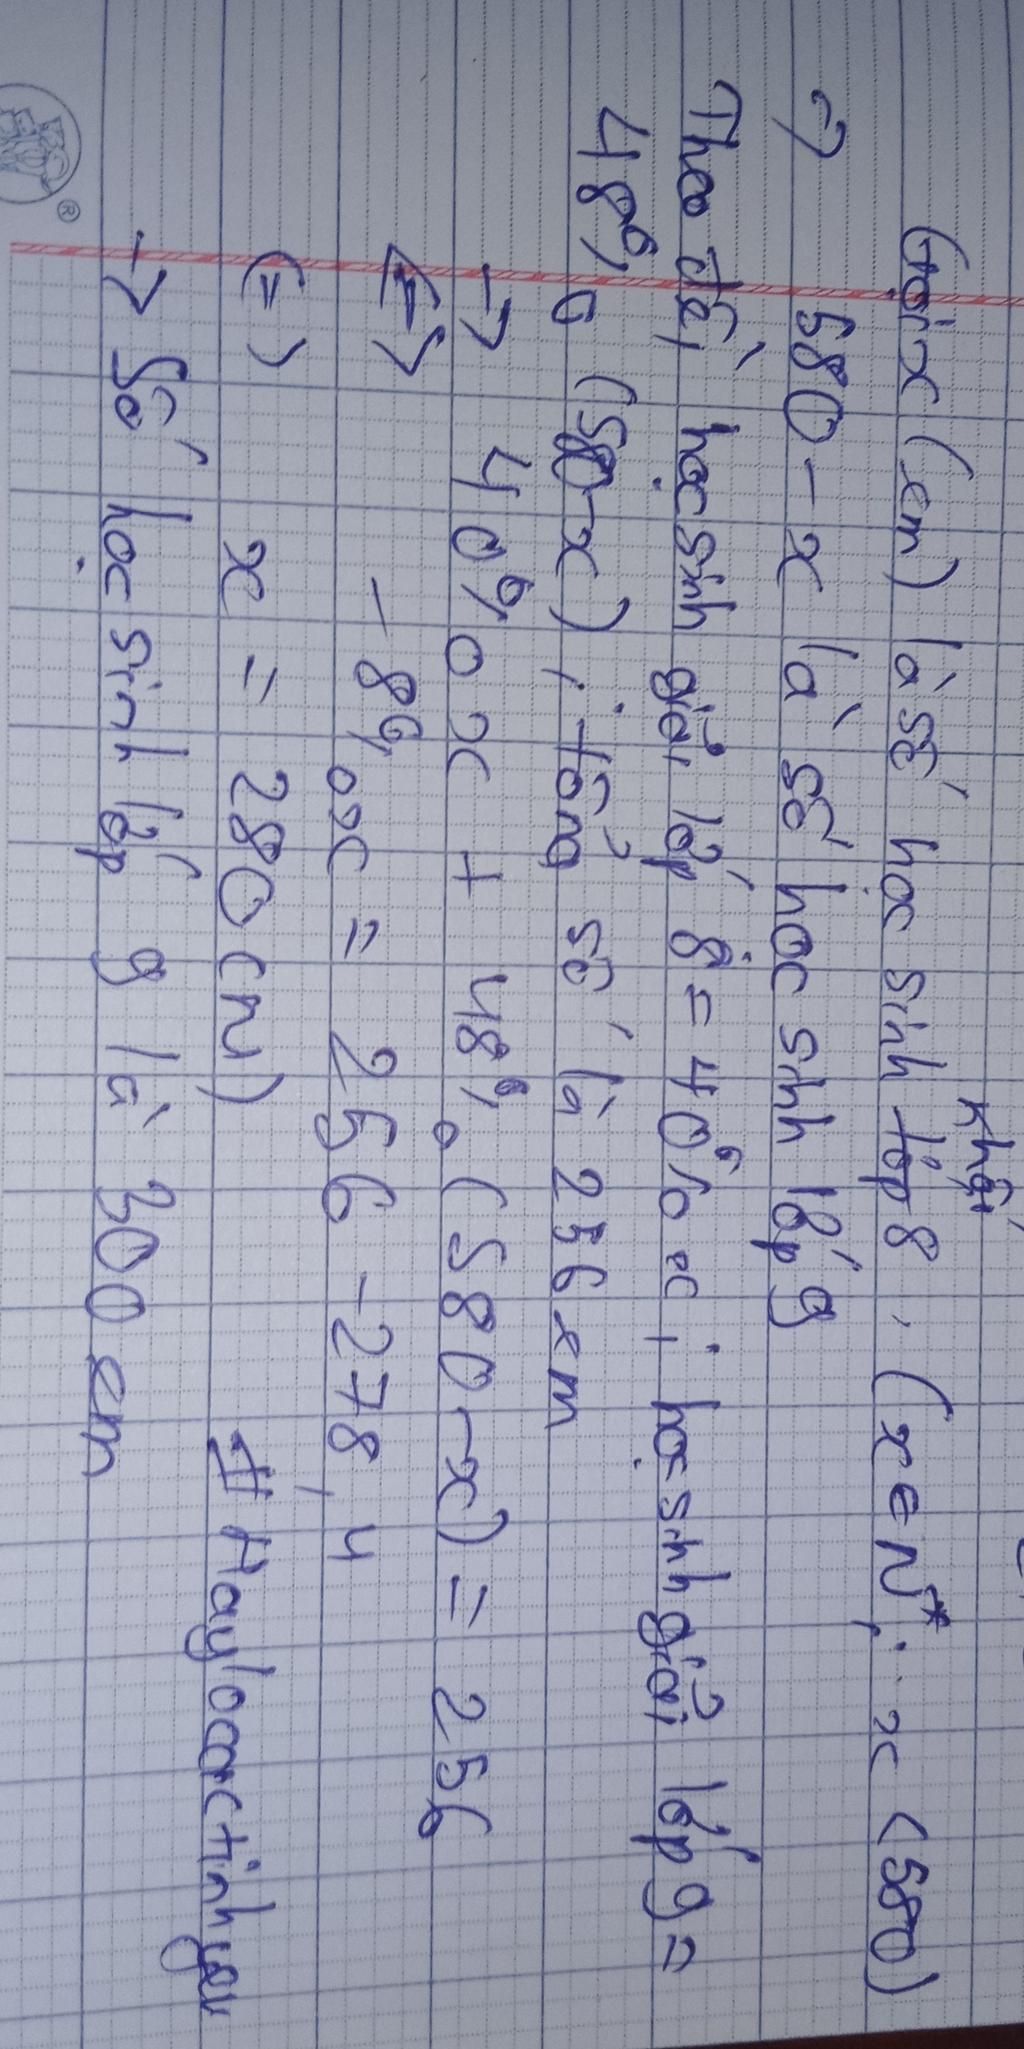 khối
Gọi x (em) là số học sinh lớp 8, (x ∈ N*; x < 580)
-> 580 - x là số học sinh lớp 9
Theo đề, học sinh giỏi lớp 8 = 40% x; học sinh giỏi lớp 9 =
48% (580-x); tổng số là 256 em
-> 40% x + 48% (580-x) = 256
<=> - 8% x = 256 - 278,4
<=> x = 280 (N)
-> Số học sinh lớp 9 là 300 em
®